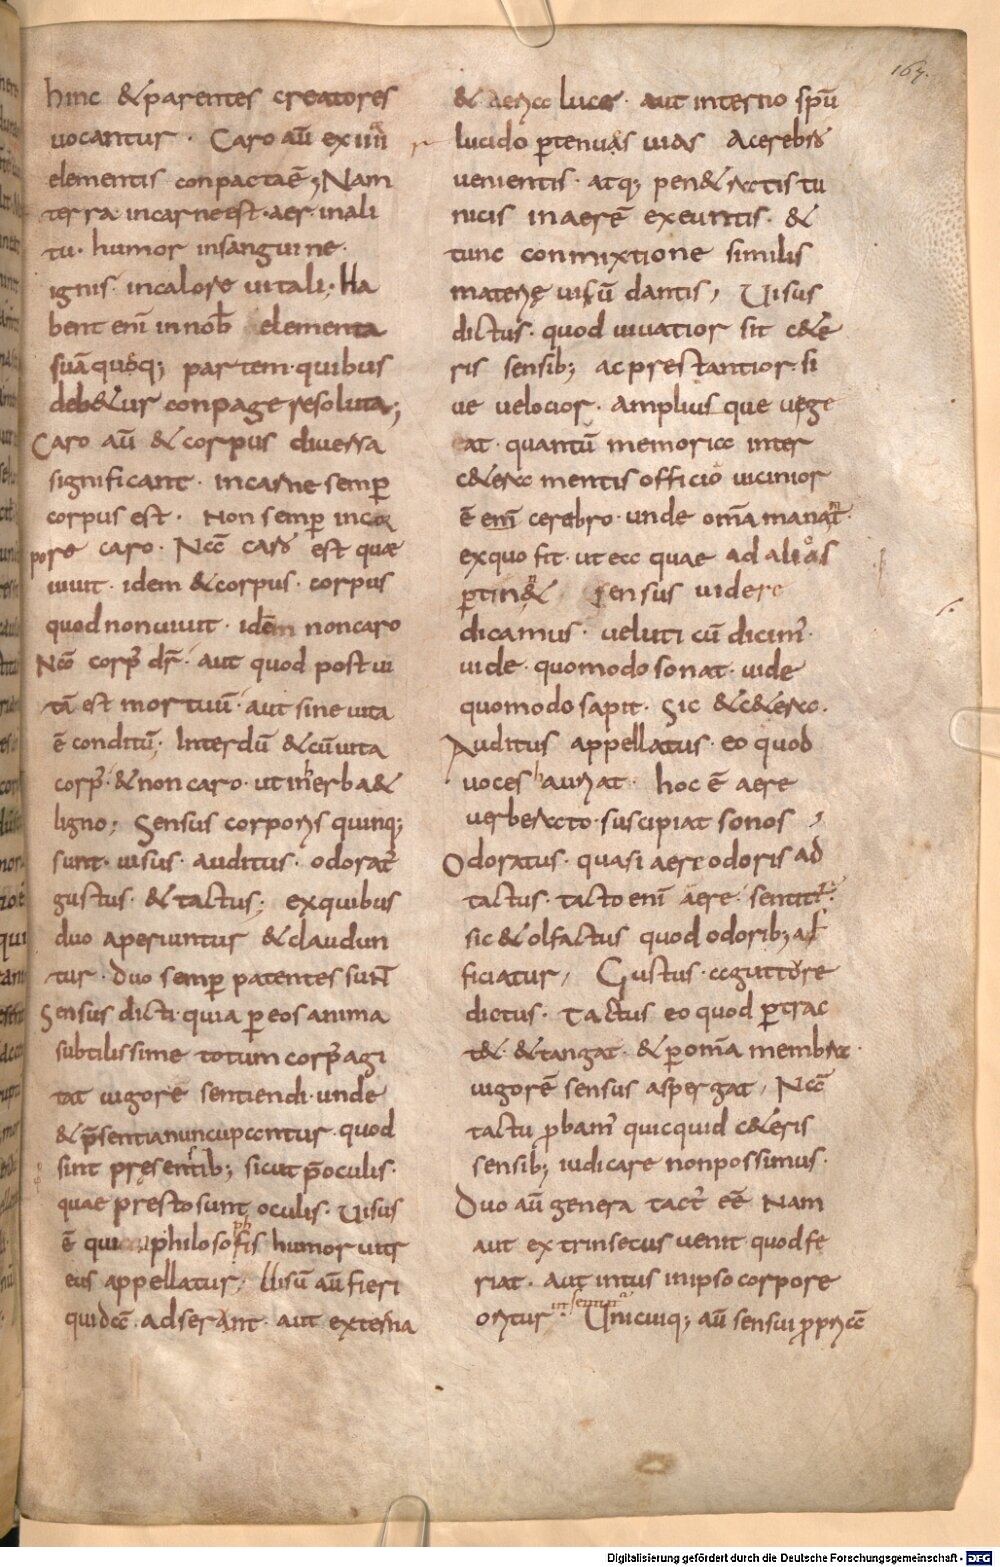 167.
hinc & parentes creatores
uocantur · Caro aū ex iiii
elementis conpacta ē; Nam
terra in carne est · aer in ali
tu · humor in sanguine ·
ignis · in calore uitali; Ha
bent enī in nob̄ elementa
suā quoq; partem · quibus
deb&ur conpage resoluta;
Caro aū & corpus diuersa
significant · in carne semp̄
corpus est · Non semp̄ in cor
pore caro · Nā caro est quae
uiuit · idem & corpus · corpus
quod non uiuit · idem non caro
Nā corp' dr̄ · aut quod post ui
tā est mortuū · aut sine uita
ē conditū; Interdū & cū uita
corp' · & non caro · ut in herba &
ligno; Sensus corporis quinq;
sunt · uisus · auditus · odorat'
gustus · & tactus; ex quibus
duo aperiuntur & claudun
tur · duo semp̄ patentes sunt
Sensus dicti · quia p̄ eos anima
subtilissime totum corp' agi
tat uigore sentiendi · unde
& p̄sentia nuncupantur · quod
sint pręsensib; sicut p̄ oculis ·
quae pręsto sunt oculis · Uisus
ē qui philosofis humor uitr
ph
eus appellatur; Uisū aū fieri
quidā · adserant · aut externa
& aeria luce · aut interno spū
lucido p̄ tenuas uias a cerebro
uenientis · atq; pen&ratis tu
nicis in aerē exeuntis · &
tunc conmixtione similis
materię uisū dantis, Uisus
dictus · quod uiuatior sit c&e
ris sensib; ac prestantior · si
ue uelocior · amplius que uege
at · quantū memoria inter
c&era mentis officio uicinior
ē enī cerebro · unde om̄a manat ·
ex quo fit · ut ea quae ad alios
p̄tin& sensus uidere
dicamus · ueluti cū dicim' ·
uide · quomodo sonat · uide
quomodo sapit · Sic & c&era ·
Auditus appellatus · eo quod
uoces hauriat · hoc ē aere
uerberato · suscipiat sonos ,
Odoratus · quasi aere odoris ad
tactus · tacto enī aere · sentitur ·
sic & olfactus quod odorib; af
ficiatur, Gustus · a gutture
dictus · Tactus eo quod p̄trac
t& · & tangat · & p̄ om̄a membra ·
uigorē sensus aspergat, Nā
tactu p̄bam' quicquid c&eris
sensib; iudicare non possimus ·
Duo aū genera tact' eē Nam
aut extrinsecus uenit quod fe
riat · Aut intus in ipso corpore
oritur · Unicuiq; aū sensui p̄priā
Digitalisierung gefördert durch die Deutsche Forschungsgemeinschaft - DFG